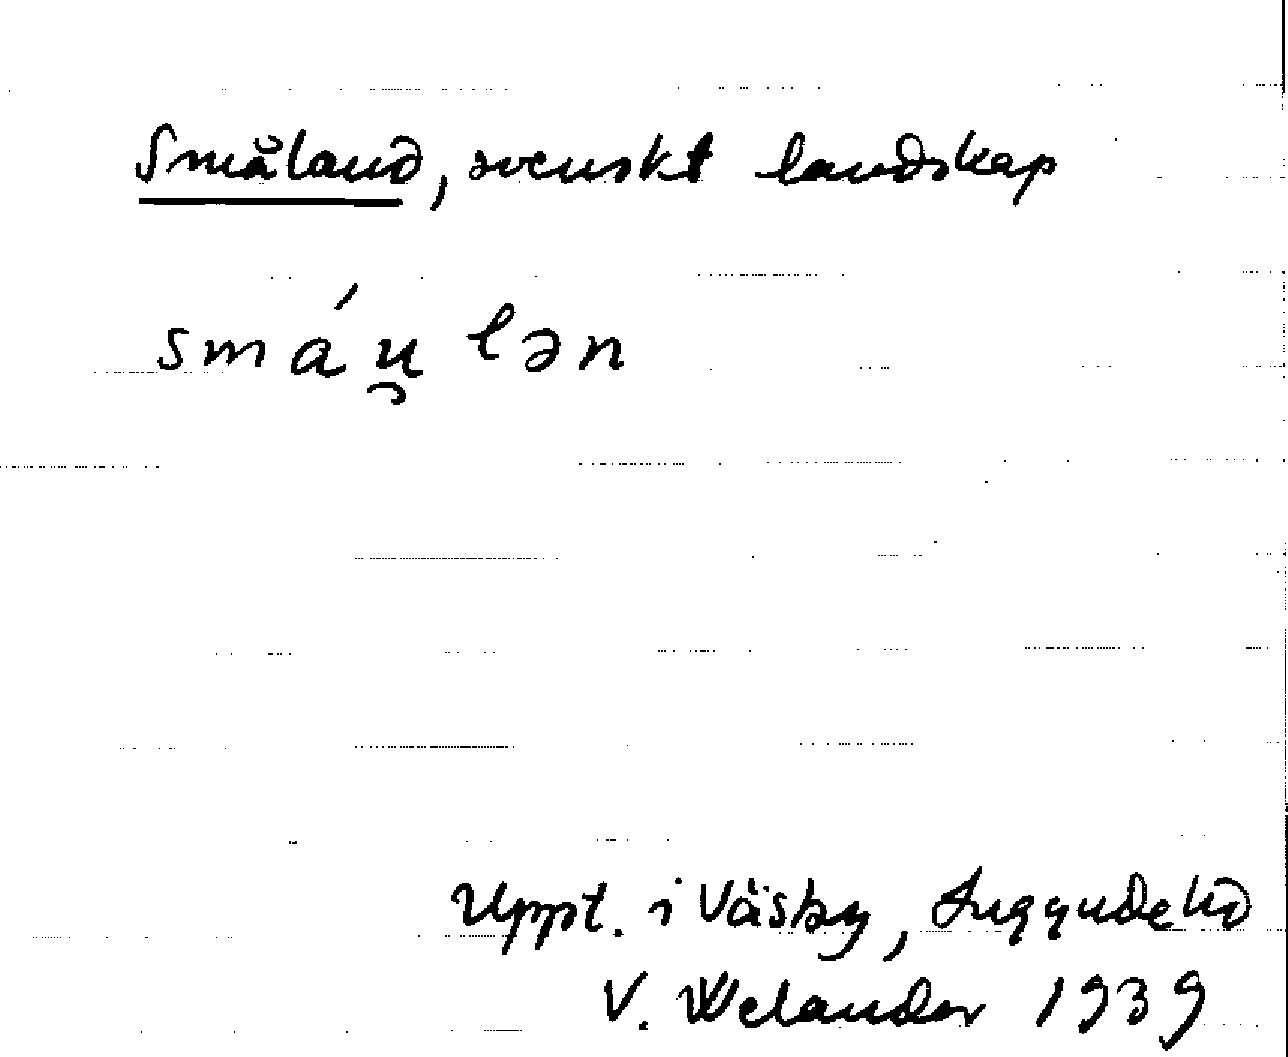 Småland, svenskt landskap
smáu̯lən
Uppt. i Väsby, Luggude hd
V. Welander 1939